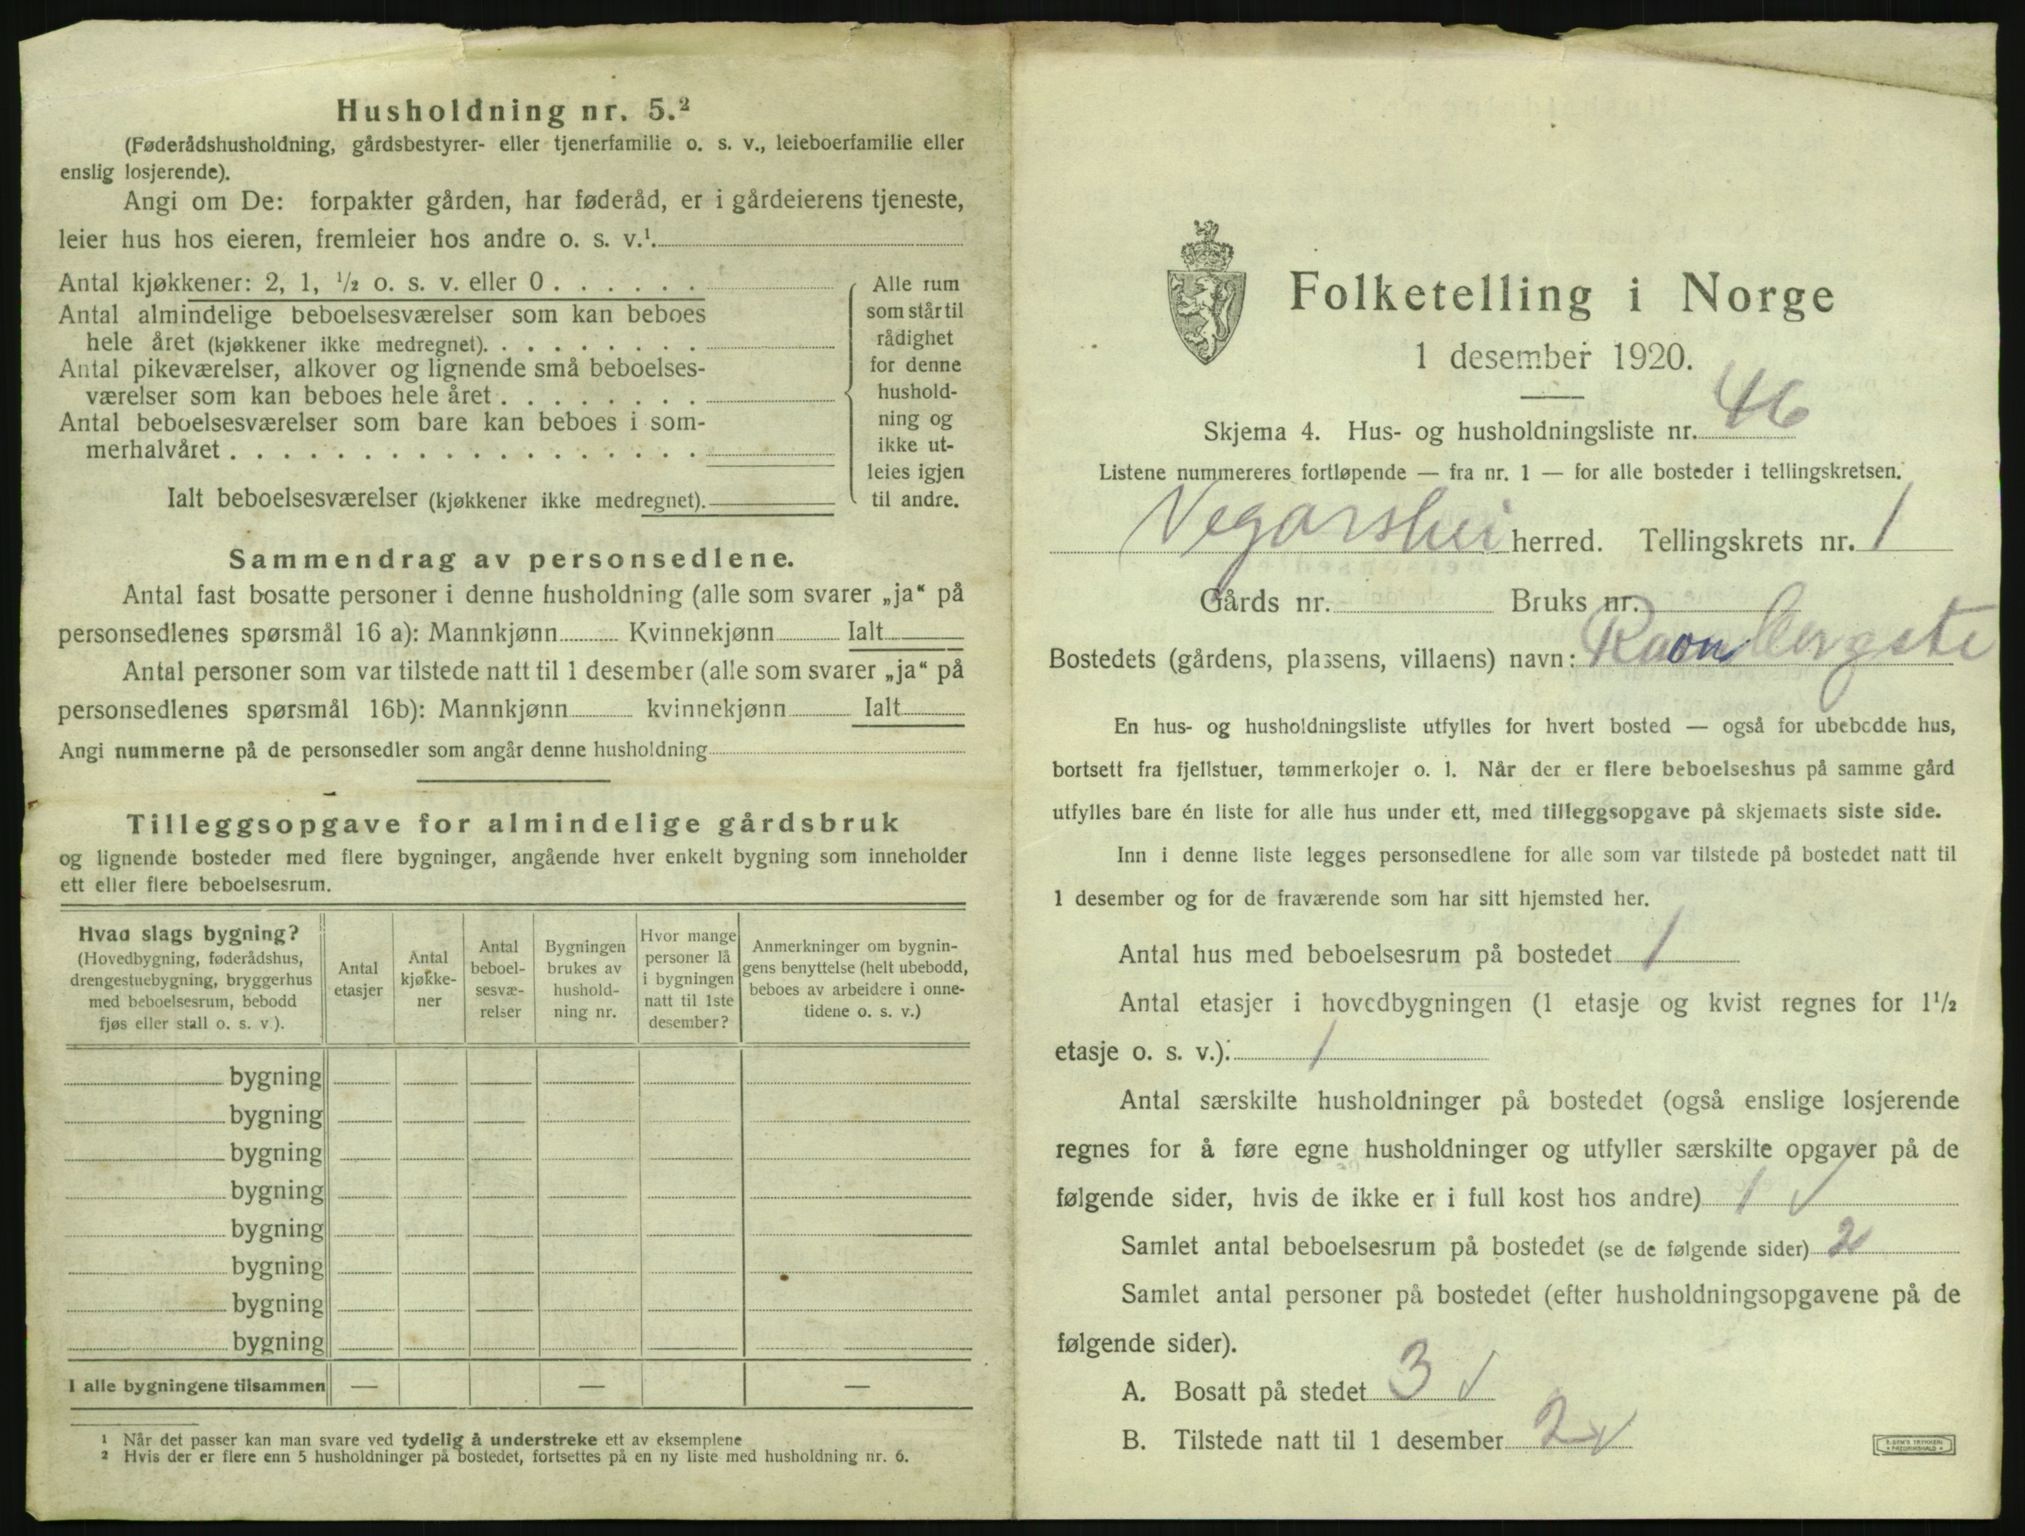 Husholdning nr. 5.²
(Føderådshusholdning, gårdsbestyrer- eller tjenerfamilie o. s. v., leieboerfamilie eller
enslig losjerende).
Angi om De: forpakter gården, har føderåd, er i gårdeierens tjeneste,
leier hus hos eieren, fremleier hos andre o. s. v.¹.
Antal kjøkkener: 2, 1, ½ o. s. v. eller 0 . . . . . .
Antal almindelige beboelsesværelser som kan beboes
hele året (kjøkkener ikke medregnet). . . . . . . . .
Antal pikeværelser, alkover og lignende små beboelses-
værelser som kan beboes hele året . . . . . . . .
Antal beboelsesværelser som bare kan beboes i som-
merhalvåret . . . . . . . . . . . . . . . . . .
Ialt beboelsesværelser (kjøkkener ikke medregnet).
Alle rum
som står til
rådighet
for denne
hushold-
ning og
ikke ut-
leies igjen
til andre.
Sammendrag av personsedlene.
Antal fast bosatte personer i denne husholdning (alle som svarer „ja“ på
personsedlenes spørsmål 16 a): Mannkjønn Kvinnekjønn Ialt
Antal personer som var tilstede natt til 1 desember (alle som svarer „ja“ på
personsedlenes spørsmål 16b): Mannkjønn kvinnekjønn Ialt
Angi nummerne på de personsedler som angår denne husholdning
Tilleggsopgave for almindelige gårdsbruk
og lignende bosteder med flere bygninger, angående hver enkelt bygning som inneholder
ett eller flere beboelsesrum.
Hvad slags bygning?
(Hovedbygning, føderådshus,
drengestuebygning, bryggerhus
med beboelsesrum, bebodd
fjøs eller stall o. s. v ).
Antal
etasjer
Antal
kjøkke-
ner
Antal
beboel-
sesvæ-
relser
Bygningen
brukes av
hushold-
ning nr.
Hvor mange
personer lå
i bygningen
natt til 1ste
desember?
Anmerkninger om bygnin-
gens benyttelse (helt ubebodd,
beboes av arbeidere i onne-
tidene o. s. v.)
bygning
bygning
bygning
bygning
bygning
bygning
bygning
bygning
I alle bygningene tilsammen — — —
¹ Når det passer kan man svare ved tydelig å understreke ett av eksemplene
² Hvis der er flere enn 5 husholdninger på bostedet, fortsettes på en ny liste med husholdning nr. 6.
Folketelling i Norge
1 desember 1920.
Skjema 4. Hus- og husholdningsliste nr. 46
Listene nummereres fortløpende — fra nr. 1 — for alle bosteder i tellingskretsen.
Vegarshei herred. Tellingskrets nr. 1
Gårds nr. Bruks nr.
Bostedets (gårdens, plassens, villaens) navn:
En hus- og husholdningsliste utfylles for hvert bosted — også for ubebodde hus,
bortsett fra fjellstuer, tømmerkojer o. l. Når der er flere beboelseshus på samme gård
utfylles bare én liste for alle hus under ett, med tilleggsopgave på skjemaets siste side.
Inn i denne liste legges personsedlene for alle som var tilstede på bostedet natt til
1 desember og for de fraværende som har sitt hjemsted her.
Antal hus med beboelsesrum på bostedet 1
Antal etasjer i hovedbygningen (1 etasje og kvist regnes for 1½
etasje o. s. v.): 1
Antal særskilte husholdninger på bostedet (også enslige losjerende
regnes for å føre egne husholdninger og utfyller særskilte opgaver på de
følgende sider, hvis de ikke er i full kost hos andre) 1 ✓
Samlet antal beboelsesrum på bostedet (se de følgende sider) 2
Samlet antal personer på bostedet (efter husholdningsopgavene på de
følgende sider).
A. Bosatt på stedet 3 ✓
B. Tilstede natt til 1 desember 2 ✓